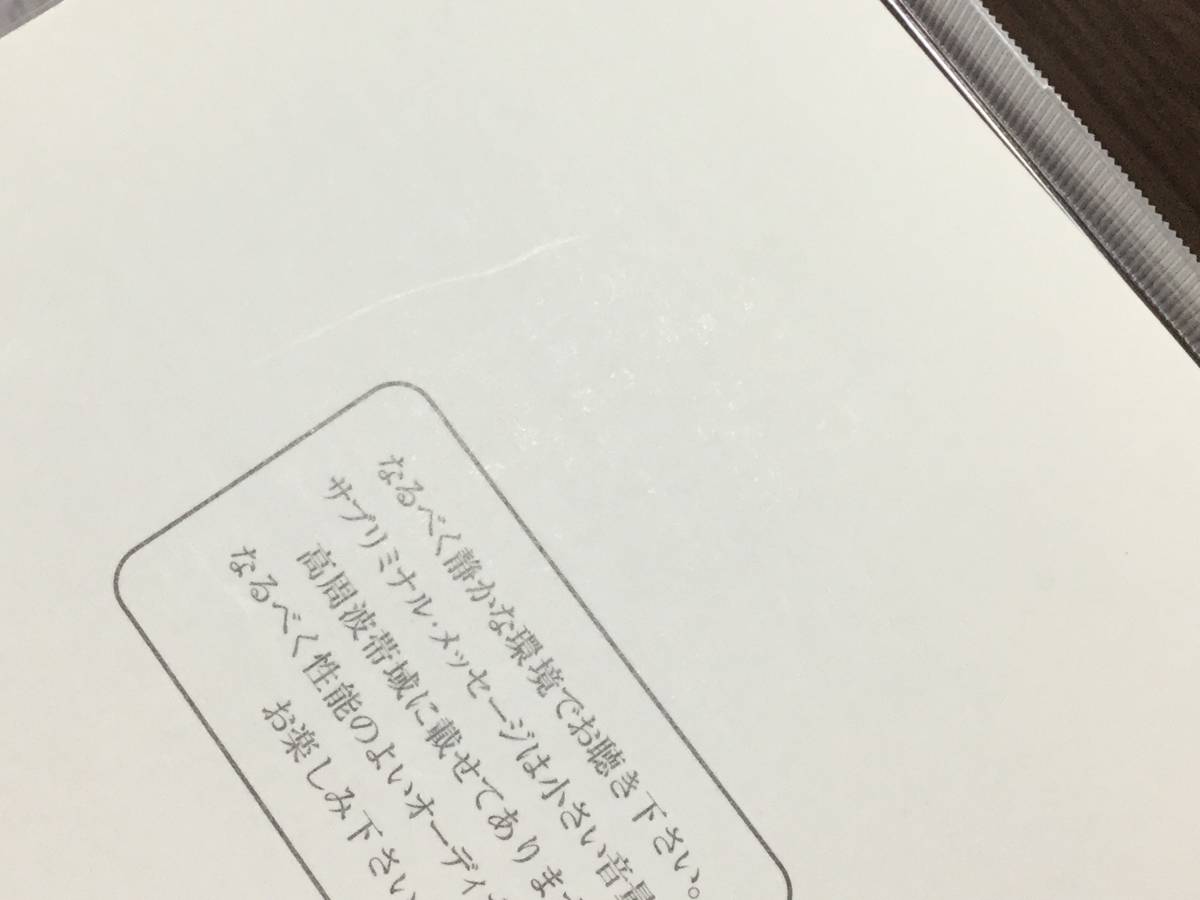 なるべく静かな環境でお聴き下さい。
サブリミナル・メッセージは小さい音量
高周波帯域に載せてあります
なるべく性能のよいオーディ
お楽しみ下さい